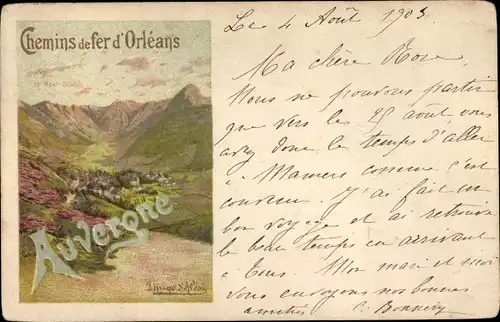 Chemins de fer d'Orléans
Auvergne
F. Hugo d'Alési
Le 4 Août 1903
Ma chère Rose
Nous ne pouvons partir
que vers le 25 août vous
avez donc le temps d'aller
à Mamers comme c'est
convenu. J'ai fait un
bon voyage et ai retrouvé
le beau temps en arrivant
à Tours. Mon mari et moi
vous envoyons nos bonnes
amitiés